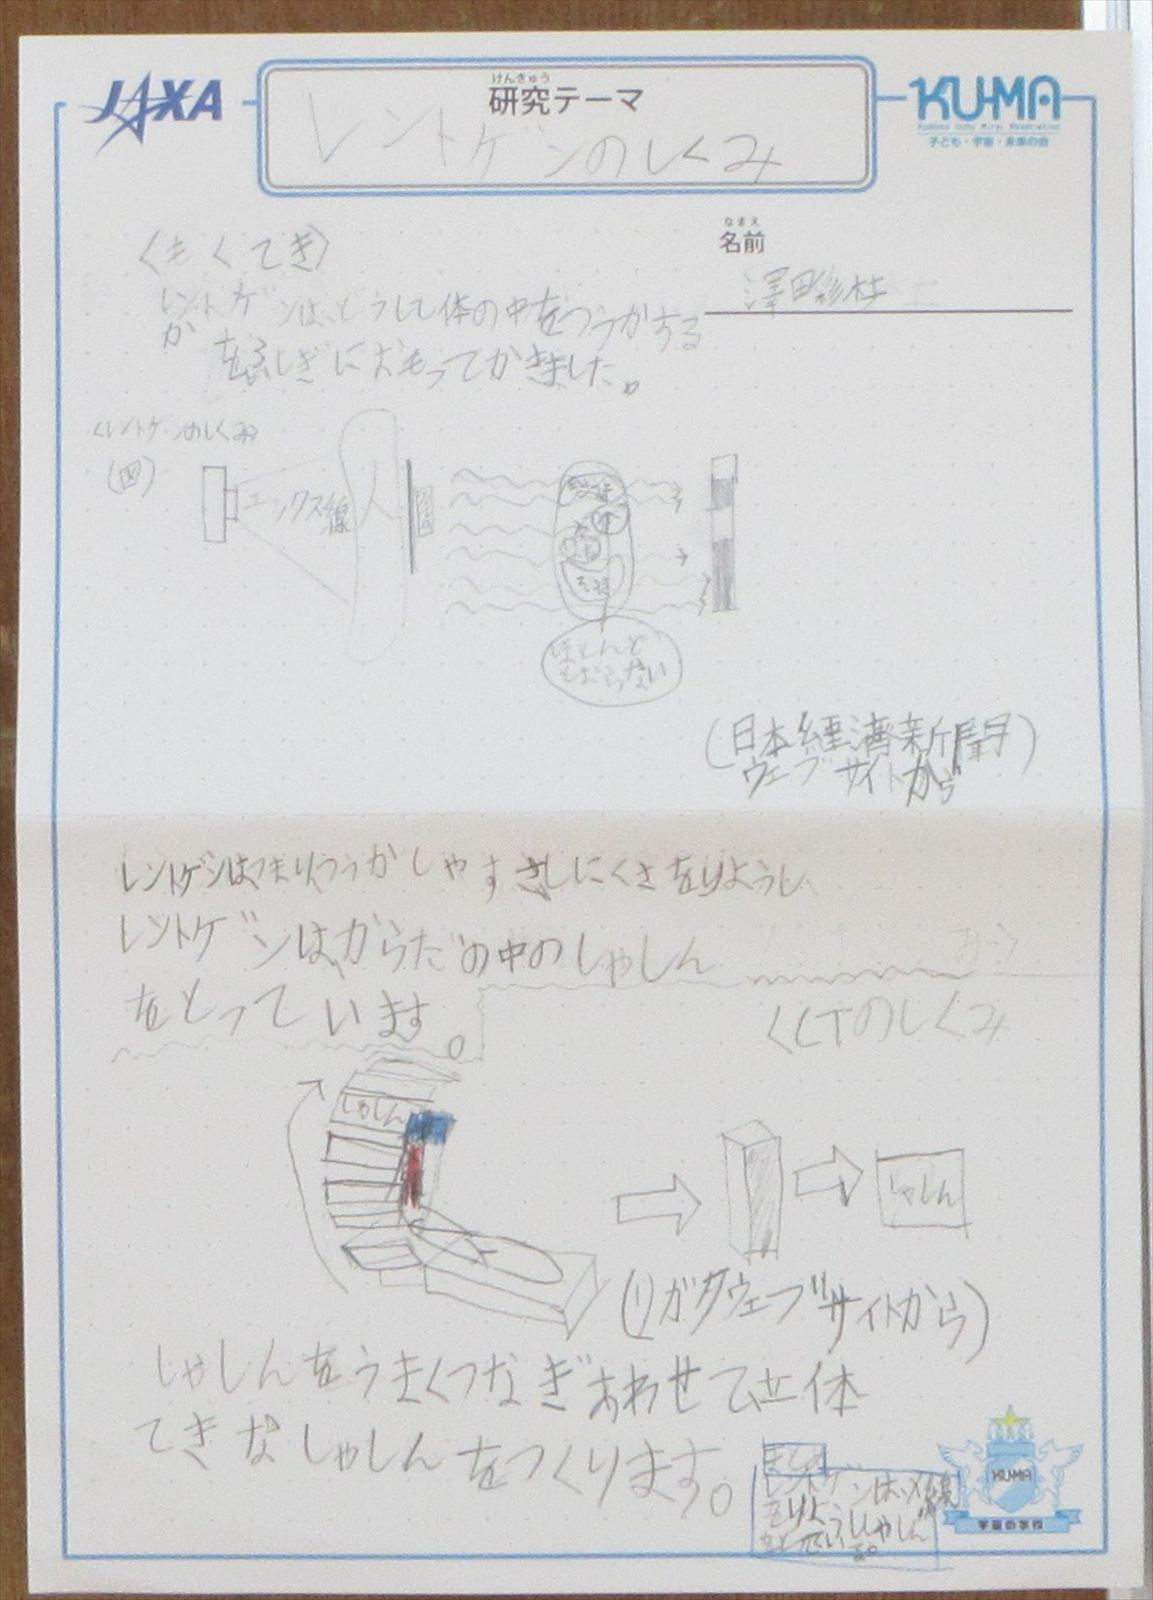 JAXA
けんきゅう
研究テーマ
レントゲンのしくみ
KU-MA
子ども・宇宙・未来の会
〈もくてき〉
なまえ
名前
レントゲンは、どうして体の中をつうかする
か
をふしぎにおもってかきました。
〈レントゲンのしくみ〉
(図)
エックス線
人
ほとんど
(日本経済新聞
ウェブサイトから)
レントゲンはつまりつうかしやすさしにくさをりようし、
レントゲンは、からだの中のしゃしん
をとっています。
〈CTのしくみ
しゃしん
しゃしん
(リガクウェブサイトから)
しゃしんをうまくつなぎあわせて立体
てきなしゃしんをつくります。
レントゲンは、X線
をりようししゃしん
KU-MA
宇宙の学校